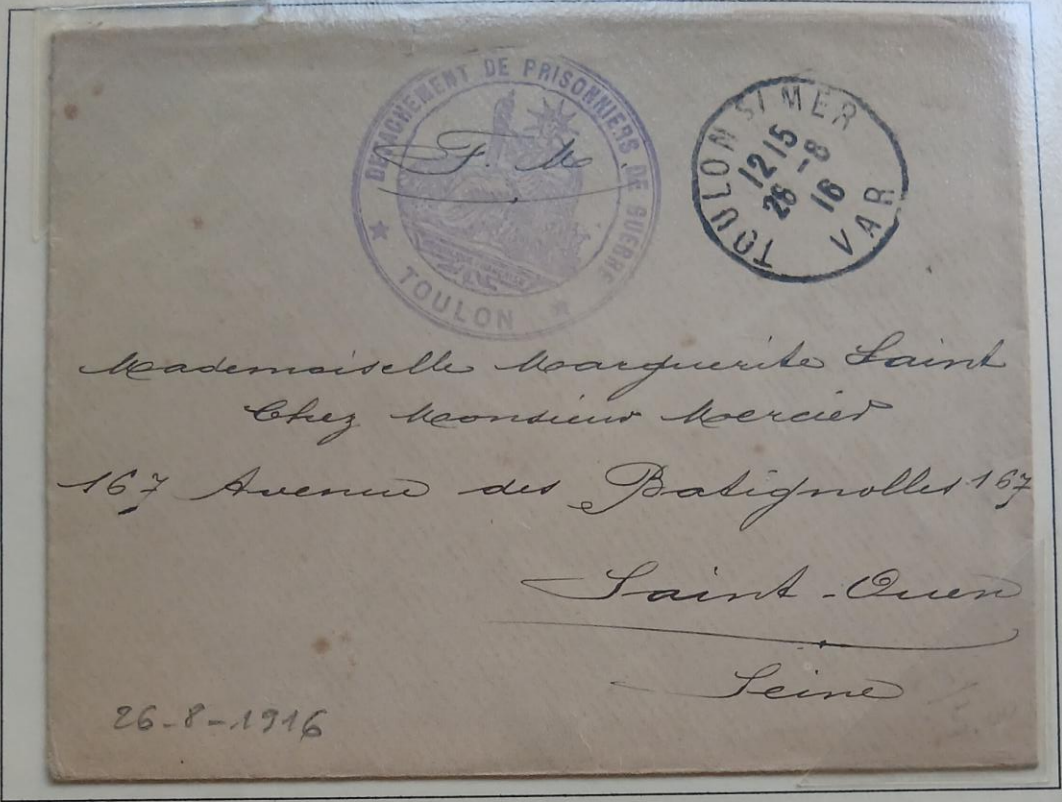 DETACHEMENT DE PRISONNIERS DE GUERRE
★ TOULON ★
F. M.
TOULON S/ MER
12 15
26 - 8
16
VAR
Mademoiselle Marguerite Saint
Chez Monsieur Mercier
167 Avenue des Batignolles 167
Saint-Ouen
Seine
26-8-1916